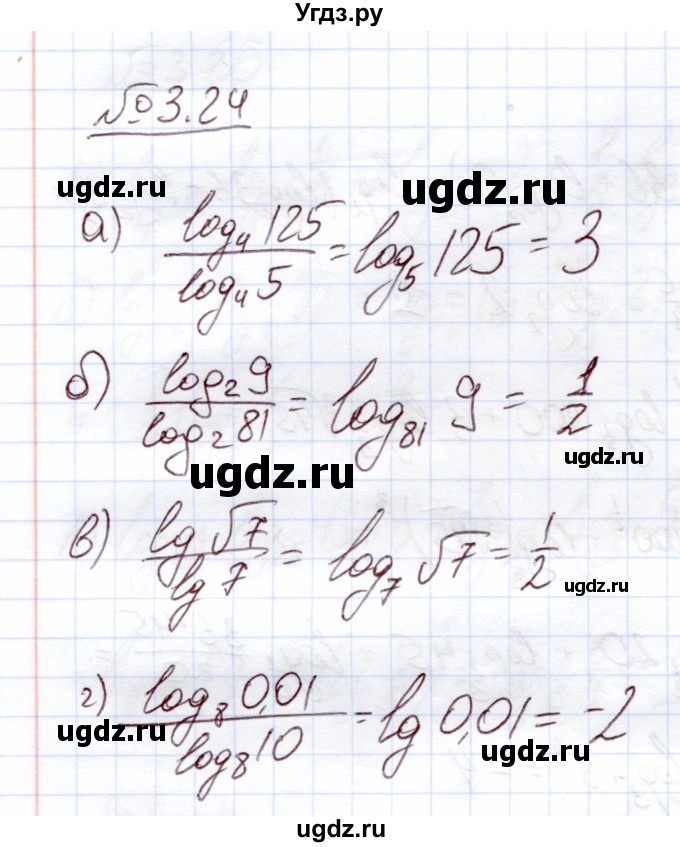 Угдз.ру
№ 3.24
ugdz.ru ugdz.ru
а) log₄ 125 / log₄ 5 = log₅ 125 = 3
б) log₂ 9 / log₂ 81 = log₈₁ 9 = 1/2
ugdz.ru ugdz.ru
в) lg √7 / lg 7 = log₇ √7 = 1/2
ugdz.ru
г) log₈ 0,01 / log₈ 10 = lg 0,01 = -2
ugdz.ru ugdz.ru
ugdz.ru